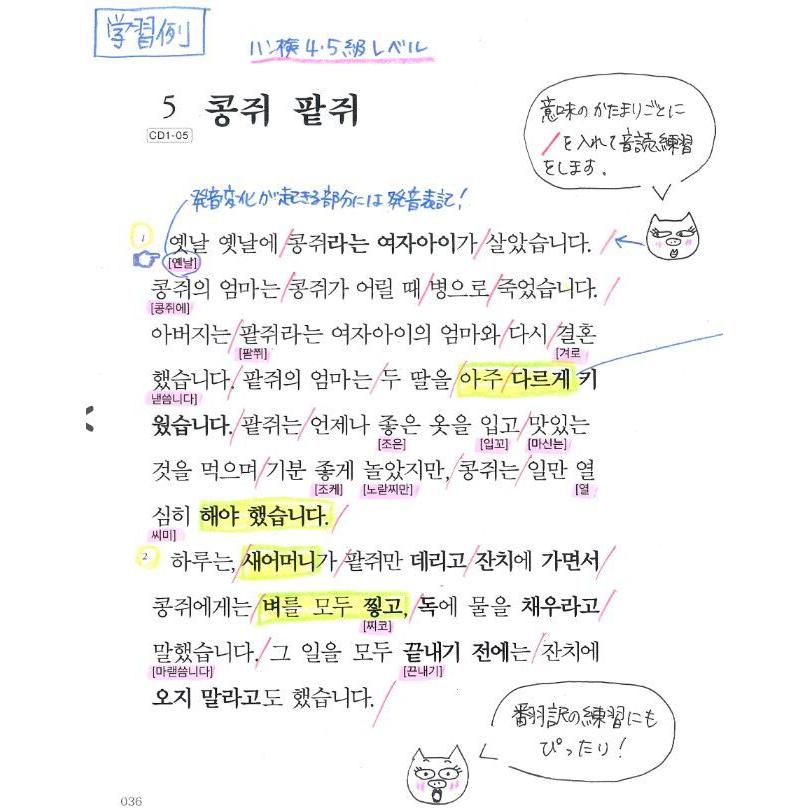 学習例
ハン検4・5級レベル
5 콩쥐 팥쥐
CD1-05
意味のかたまりごとに
/を入れて音読練習
をします。
発音変化が起きる部分には発音表記！
1 옛날 옛날에/콩쥐라는 여자아이가/살았습니다./
[옌날]
콩쥐의 엄마는/콩쥐가 어릴 때/병으로/죽었습니다./
[콩쥐에]
아버지는/팥쥐라는 여자아이의 엄마와/다시/결혼
[팓쮜] [겨로
했습니다./팥쥐의 엄마는/두 딸을/아주/다르게 키
낻씀니다]
웠습니다./팥쥐는/언제나 좋은 옷을 입고/맛있는
[조은] [입꼬] [마신는]
것을 먹으며/기분 좋게 놀았지만,/콩쥐는/일만 열
[조케] [노랃찌만] [열
심히 해야 했습니다./
씨미]
2 하루는,/새어머니가/팥쥐만 데리고/잔치에 가면서/
콩쥐에게는/벼를 모두 찧고,/독에 물을 채우라고/
[찌코]
말했습니다./그 일을 모두 끝내기 전에는/잔치에
[마랟씀니다] [끈내기]
오지 말라고도 했습니다./
翻訳の練習にも
ぴったり！
036